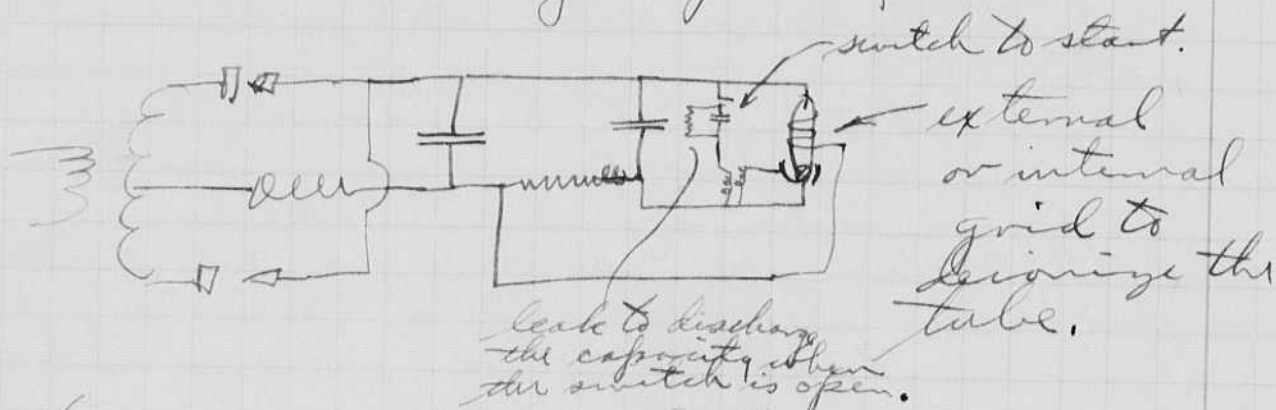 switch to start.
external
or internal
grid to
deionize the
tube.
leak to discharge
the capacity when
the switch is open.